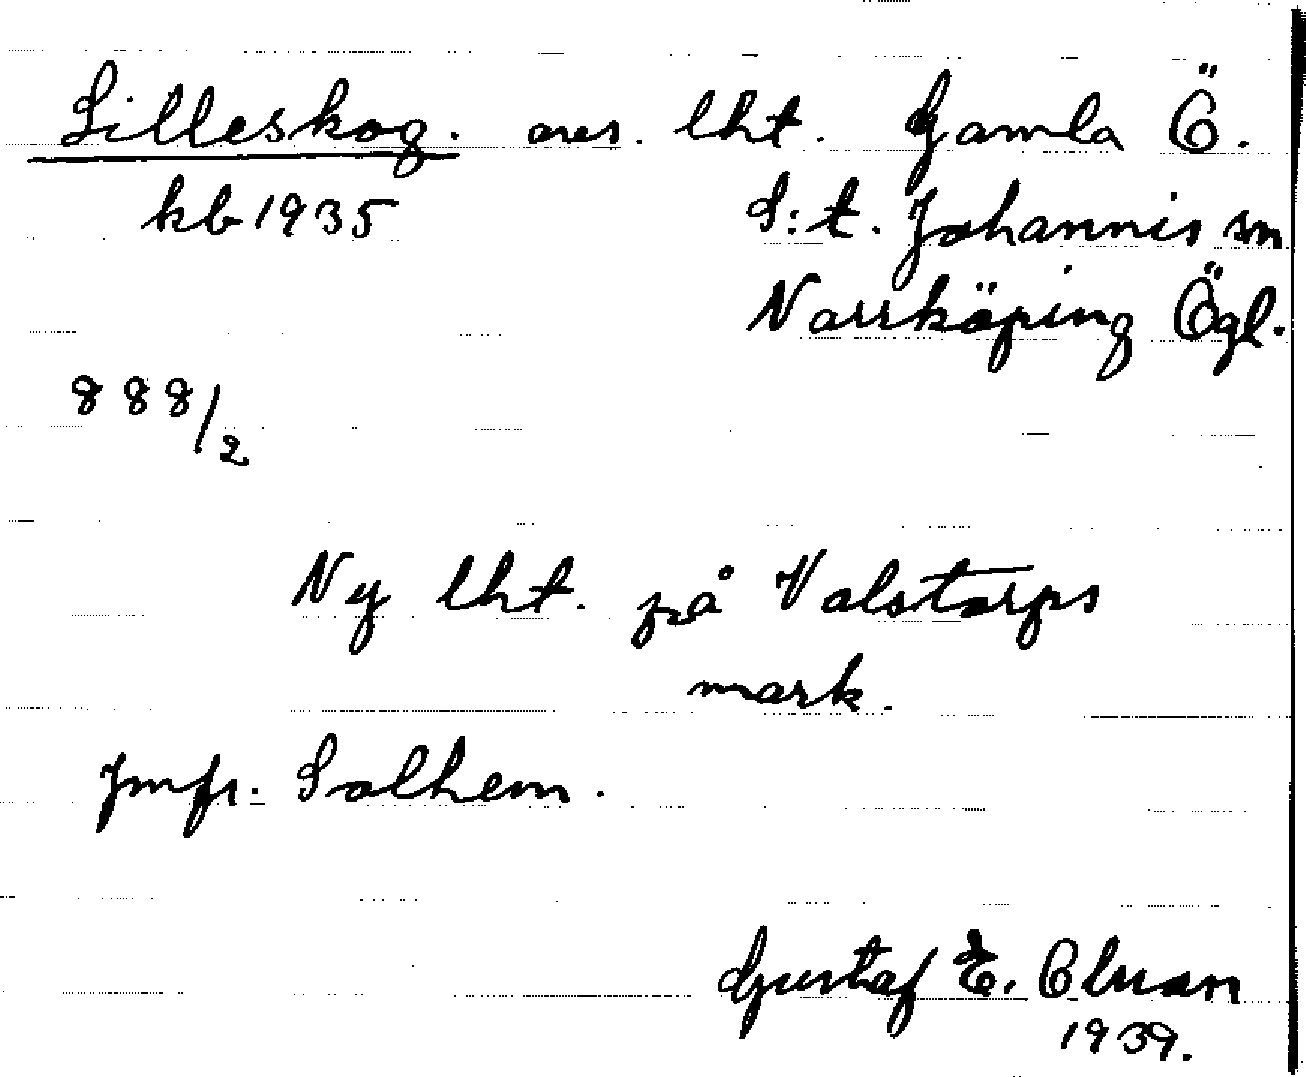 Lilleskog. oves. lht. Gamla Ö.
kb 1935 S:t. Johannis sn
Norrköping Ögl.
888/2
Ny lht. på Valstorps
mark.
Jmfr. Solhem.
Gustaf E. Olsson
1939.